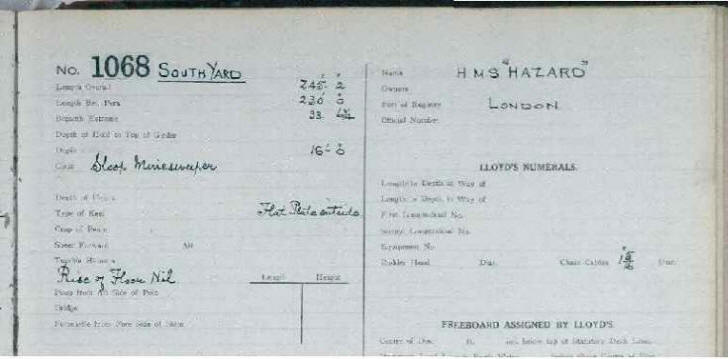 No. 1068 SOUTH YARD
Length Overall 245' 2"
Length Bet. Perps 230' 0"
Breadth Extreme 33'
Depth of Hold to Top of Girder
Depth 16' 0"
Class Sloop Minesweeper
Depth of
Type of Keel Flat Plate outside
Sheer Forward Aft
Rise of Floor Nil
Length Height
Bridge
Forecastle from Fore Side of Stem
Name HMS "HAZARD"
Owners
Port of Registry LONDON
Official Number
LLOYD'S NUMERALS.
Length x Depth at Way of
Length x Depth to Way of
First Longitudinal No.
Second Longitudinal No.
Equipment No.
Rudder Head Diar. Chain Cables Diar.
FREEBOARD ASSIGNED BY LLOYD'S
Centre of Disc ft. ins. below top of Statutory Deck Line.